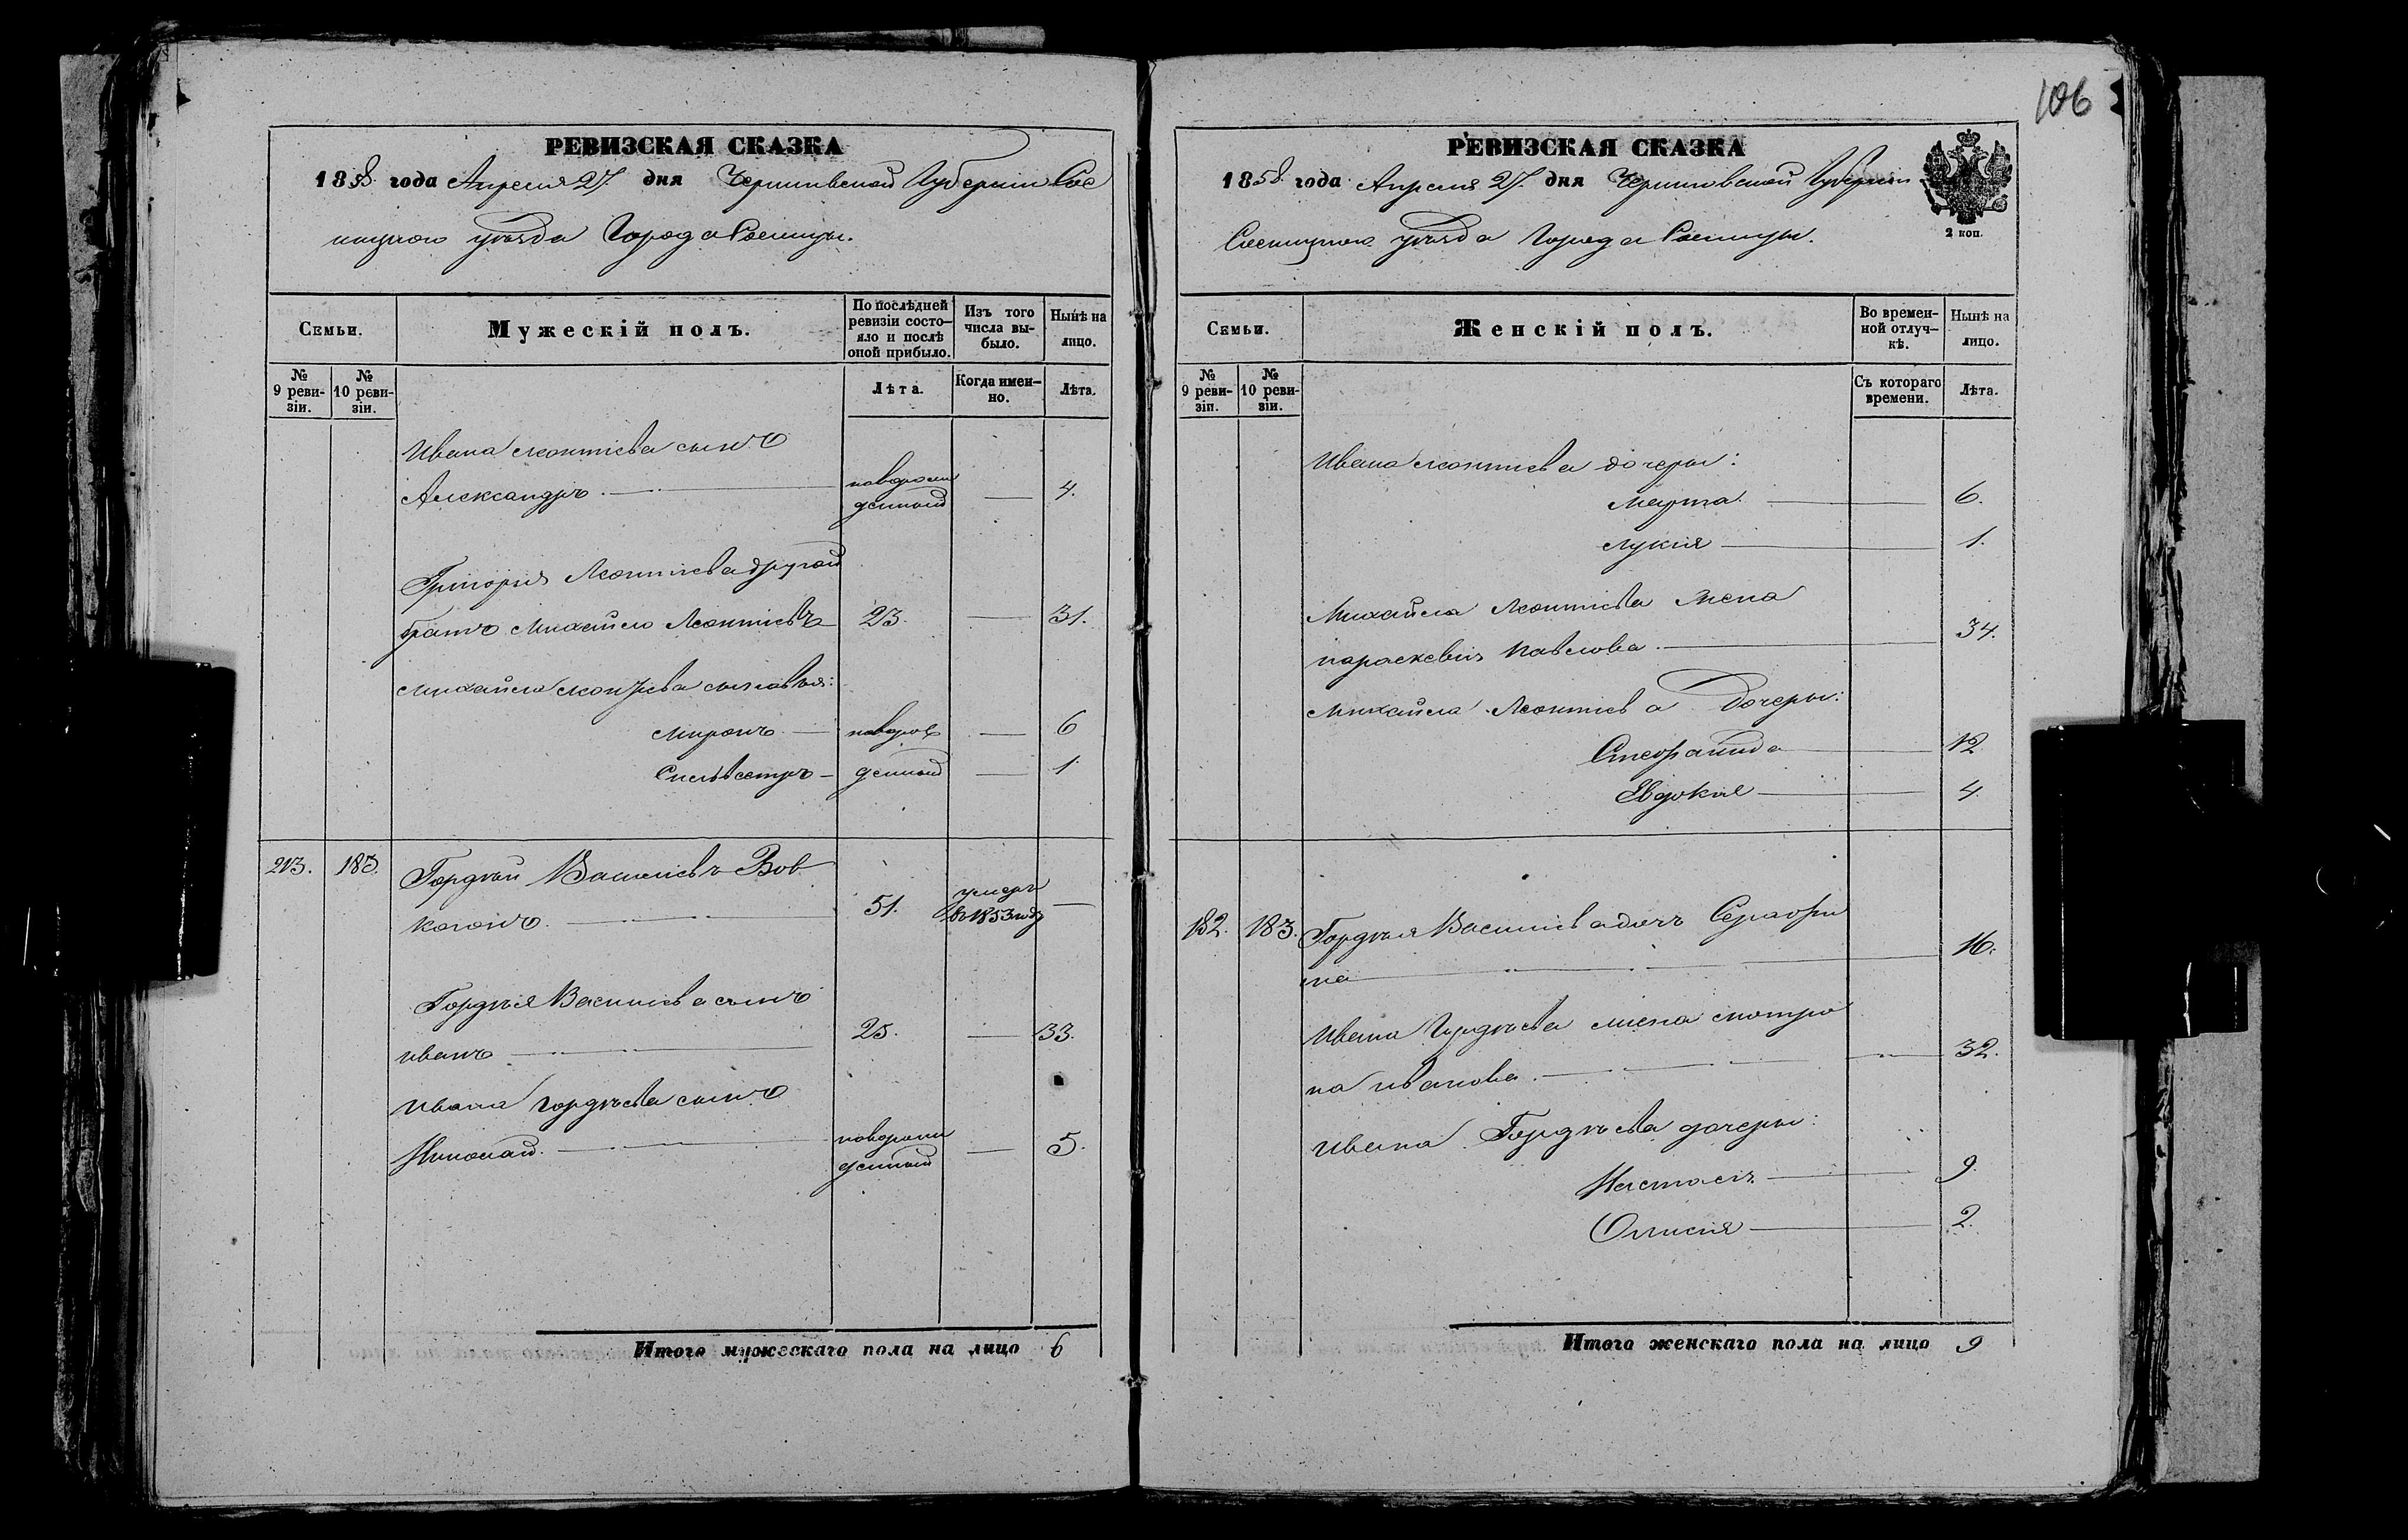 106
РЕВИЗСКАЯ СКАЗКА
1858. года Апреля 27. дня Черниговской Губернии Сос
ницкого уѣзда Города Сосницы.
Семьи.
Мужескій полъ.
По послѣдней ревизіи состо- яло и послѣ оной прибыло.
Изъ того числа вы- было.
Нынѣ на лицо.
№ 9 реви- зіи.
№ 10 реви- зіи.
Лѣта.
Когда имен- но.
Лѣта.
Ивана Леонтіева сынъ
Александръ. новорож денный 4.
Григорія Леонтіева другой
братъ Михайло Леонтіевъ 23. 31.
Михайла Леонтіева сыновья:
Миронъ новорож 6
Сильвестръ денный 1
213. 183. Гордѣй Васильевъ Вов
когонъ. 51. умеръ в 1853 году
Гордѣя Васильева сынъ
Иванъ 25. 33.
Ивана Гордѣева сынъ
Николай. новорож денный 5.
Итого мужескаго пола на лицо 6
РЕВИЗСКАЯ СКАЗКА
1858. года Апреля 27. дня Черниговской Губернии
Сосницкого уѣзда Города Сосницы.
2 коп.
Семьи.
Женскій полъ.
Во времен- ной отлуч- кѣ.
Нынѣ на лицо.
№ 9 реви- зіи.
№ 10 реви- зіи.
Съ котораго времени.
Лѣта.
Ивана Леонтіева дочери:
Марта. 6.
Лукія 1.
Михайла Леонтіева жена
Параскевія Павлова. 34.
Михайла Леонтіева дочери:
Степанида 12
Евдокія 4.
182. 183. Гордѣя Васильева дочь Серафи
ма 16.
Ивана Гордѣева жена Мотро
на Иванова. 32.
Ивана Гордѣева дочери:
Настасія 9.
Олисія 2.
Итого женскаго пола на лицо 9